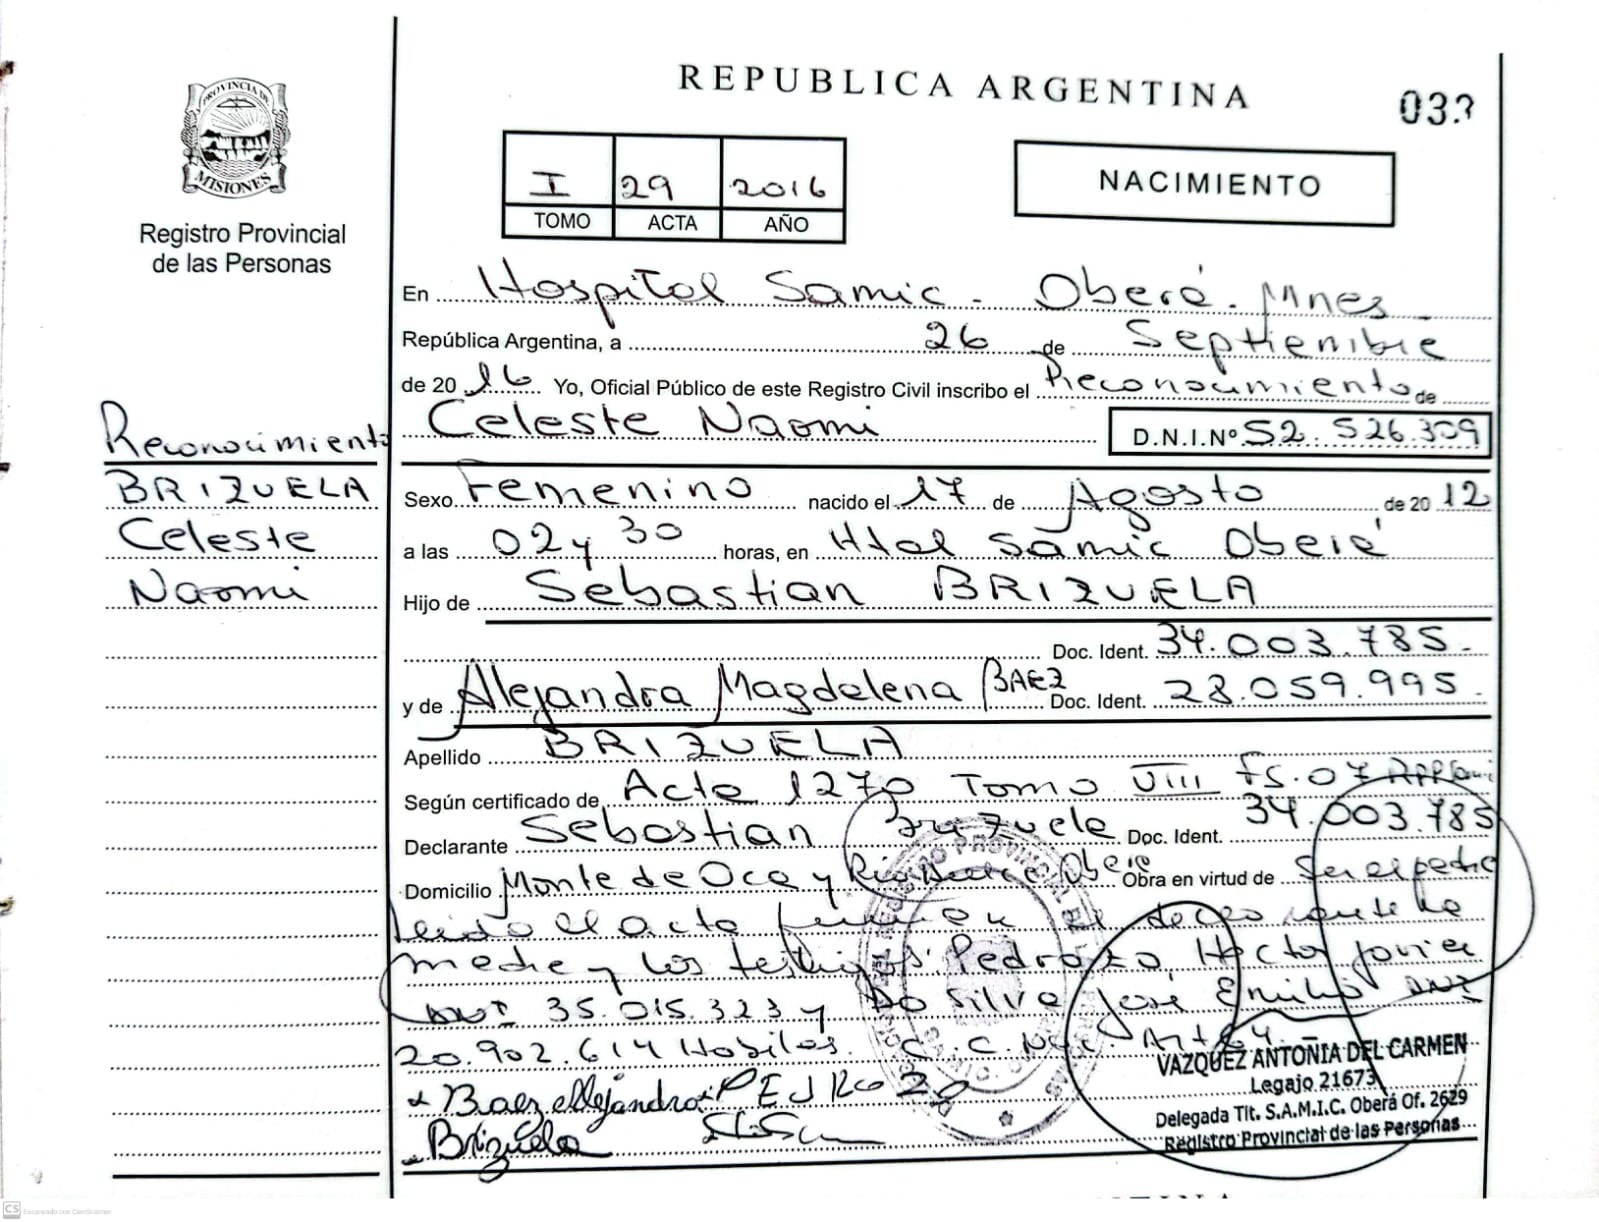 REPUBLICA ARGENTINA
PROVINCIA DE
MISIONES
Registro Provincial
de las Personas
I 29 2016
TOMO ACTA AÑO
NACIMIENTO
En Hospital Samic - Oberá - Mnes
República Argentina, a 26 de Septiembre
de 2016 Yo, Oficial Público de este Registro Civil inscribo el Reconocimiento de
Celeste Naomi D.N.I.Nº 52.526.309
Reconocimiento
BRIZUELA
Celeste
Naomi
Sexo Femenino nacido el 17 de Agosto de 2012
a las 02 y 30 horas, en Htal Samic Oberá
Hijo de Sebastian BRIZUELA
Doc. Ident. 34.003.785.
y de Alejandra Magdalena BAEZ Doc. Ident. 28.059.995.
Apellido BRIZUELA
Según certificado de Acta 1270 Tomo VIII FS. 07
Declarante Sebastian Brizuela Doc. Ident. 34.003.785
Domicilio Monte de Oca y Obera Obra en virtud de
Leido el acta firman el declarante la
madre y los testigos Pedrozo, Hector Javier
DNI 35.015.323 y Do Silva José Emilio DNI
20.902.614 Habiles. C.C.
Baez Alejandra PEDROZO
Brizuela
VAZQUEZ ANTONIA DEL CARMEN
Legajo 21673
Delegada Tit. S.A.M.I.C. Oberá Of. 2629
Registro Provincial de las Personas
CS Escaneado con CamScanner